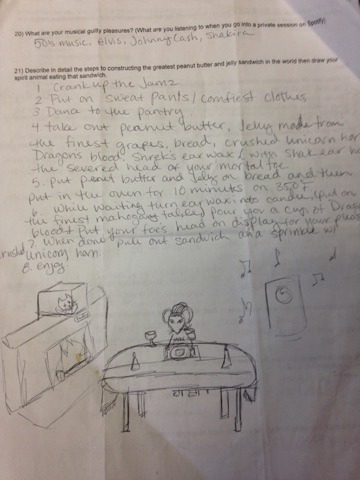 20) What are your musical guilty pleasures? (What are you listening to when you go into a private session on Spotify)
50s music, Elvis, Johnny Cash, Shakira
21) Describe in detail the steps to constructing the greatest peanut butter and jelly sandwich in the world then draw your
spirit animal eating that sandwich.
1 Crank up the Jamz
2 Put on sweat pants / comfiest clothes
3 Dance to the pantry
4 take out peanut butter, Jelly made from
the finest grapes, bread, crushed unicorn hor
Dragons blood, Shrek's ear wax,
the severed head of your mortal foe.
5. put peanut butter and Jelly on bread and then
put in the oven for 10 minutes on 350°F
6. While waiting turn ear wax into candle, (put on
the finest mahogany table) pour you a cup of Drago
blood & Put your foes head on display for your pleas
7. When done pull out sandwich and sprinkle w/
unicorn horn.
8. enjoy